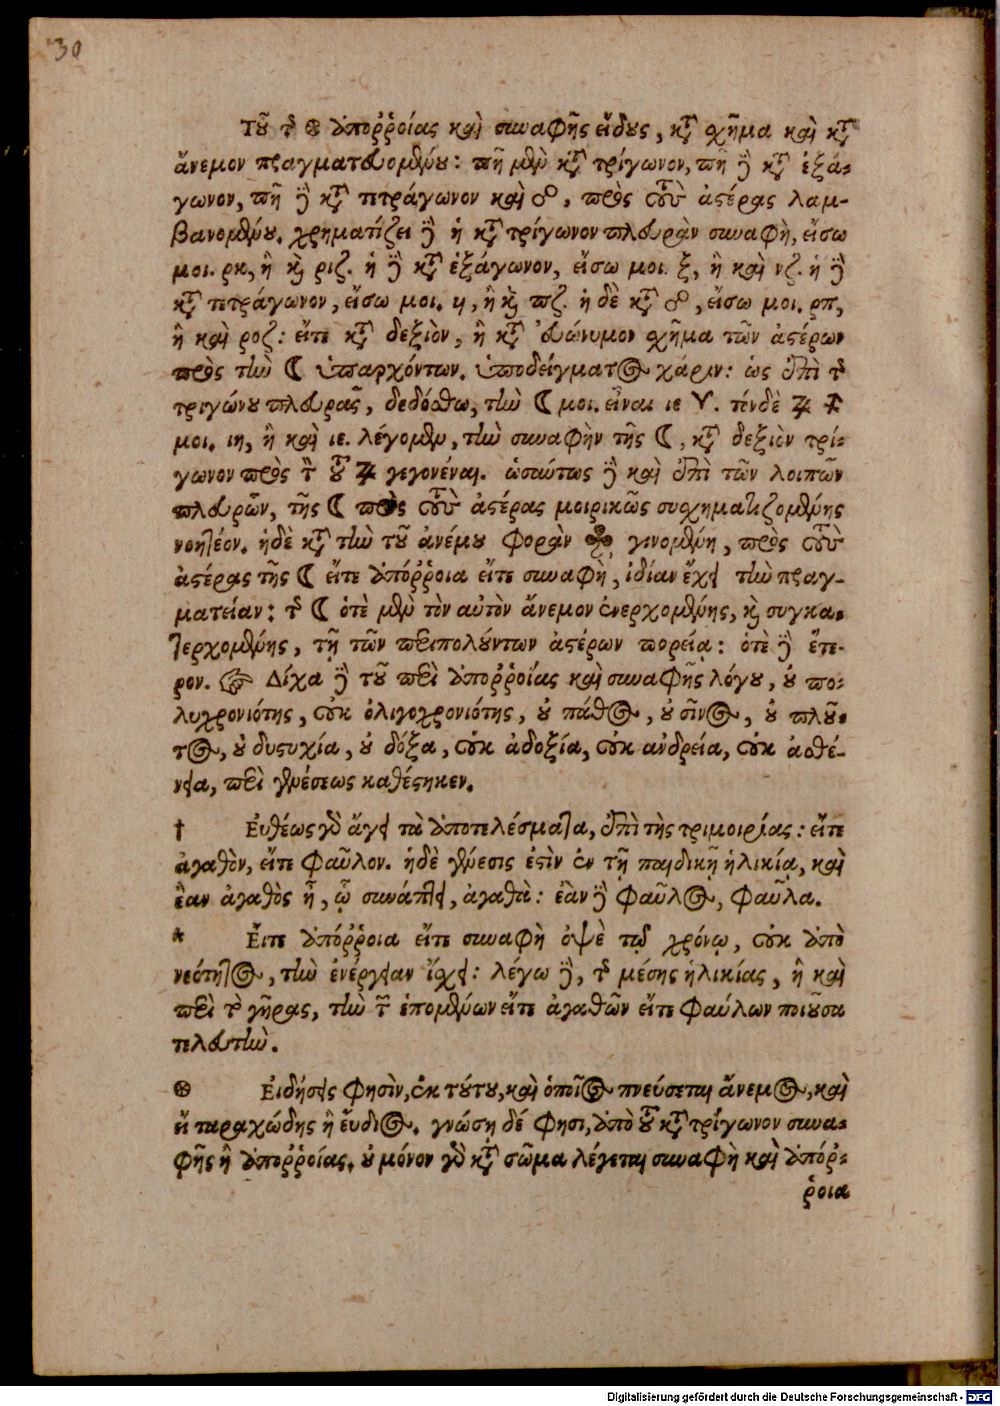 30
Τοῦ τῆς ⊛ ἀποῤῥοίας καὶ συναφῆς εἴδους, κατὰ σχῆμα καὶ κατὰ
ἄνεμον πραγματευομένου: πῆ μὲν κατὰ τρίγωνον, πῆ δὲ κατὰ ἑξά-
γωνον, πῆ δὲ κατὰ τετράγωνον καὶ ☍, πρὸς τοὺς ἀστέρας λαμ-
βανομένου. χρηματίζει δὲ ἡ κατὰ τρίγωνον πλευρὰν συναφὴ, εἴσω
μοι. ρκ, ἢ καὶ ριζ. ἡ δὲ κατὰ ἑξάγωνον, εἴσω μοι. ξ, ἢ καὶ νζ. ἡ δὲ
κατὰ τετράγωνον, εἴσω μοι. ϥ, ἢ καὶ πζ. ἡ δὲ κατὰ ☍, εἴσω μοι. ρπ,
ἢ καὶ ροζ: εἴτε κατὰ δεξιὸν, ἢ κατὰ εὐώνυμον σχῆμα τῶν ἀστέρων
πρὸς τὴν ☾ ὑπαρχόντων. ὑποδείγματος χάριν: ὡς ἐπὶ τῆς
τριγώνου πλευρᾶς, δεδόσθω, τὴν ☾ μοι. εἶναι ιε ♈. τὸν δὲ ♃ ♐
μοι. ιη, ἢ καὶ ιε. λέγομεν, τὴν συναφὴν τῆς ☾, κατὰ δεξιὸν τρί-
γωνον πρὸς τὸν τοῦ ♃ γεγονέναι. ὡσαύτως δὲ καὶ ἐπὶ τῶν λοιπῶν
πλευρῶν, τῆς ☾ πρὸς τοὺς ἀστέρας μοιρικῶς συσχηματιζομένης
νοητέον. ἡ δὲ κατὰ τὴν τοῦ ἀνέμου φορὰν ♣ γινομένη, πρὸς τοὺς
ἀστέρας τῆς ☾ εἴτε ἀπόῤῥοια εἴτε συναφὴ, ἰδίαν ἔχει τὴν πραγ-
ματείαν: τῆς ☾ ὁτὲ μὲν τὸν αὐτὸν ἄνεμον ἀνερχομένης, καὶ συγκα-
τερχομένης, τῇ τῶν περιπολούντων ἀστέρων πορείᾳ: ὁτὲ δὲ ἕτε-
ρον. ☞ Δίχα δὲ τοῦ περὶ ἀποῤῥοίας καὶ συναφῆς λόγου, οὐ πο-
λυχρονιότης, οὐκ ὀλιγοχρονιότης, οὐ πάθος, οὐ σῖνος, οὐ πλοῦ-
τος, οὐ δυστυχία, οὐ δόξα, οὐκ ἀδοξία, οὐκ ἀνδρεία, οὐκ ἀσθέ-
νεια, περὶ γενέσεως καθέστηκεν.
† Εὐθέως γὰρ ἄγει τὰ ἀποτελέσματα, ἐπὶ τῆς τριμοιρίας: εἴτε
ἀγαθὸν, εἴτε φαῦλον. ἡ δὲ γένεσις ἐστὶν ἐν τῇ παιδικῇ ἡλικίᾳ, καὶ
ἐὰν ἀγαθὸς ἦ, ᾧ συνάπτει, ἀγαθὰ: ἐὰν δὲ φαῦλος, φαῦλα.
* Εἴτε ἀπόῤῥοια εἴτε συναφὴ ὀψὲ τῷ χρόνῳ, οὐκ ἀπὸ
νεότητος, τὴν ἐνέργειαν ἴσχει: λέγω δὲ, τῆς μέσης ἡλικίας, ἢ καὶ
περὶ τὸ γῆρας, τὴν τῶν ἑπομένων εἴτε ἀγαθῶν εἴτε φαύλων ποιοῦσα
τελευτήν.
⊛ Εἰδήσεις φησὶν, ἐκ τούτου, καὶ ὁποῖος πνεύσεται ἄνεμος, καὶ
εἰ ταραχώδης ἢ εὔδιος. γνώσῃ δέ φησι, ἀπὸ τοῦ κατὰ τρίγωνον συνα-
φῆς ἢ ἀποῤῥοίας. οὐ μόνον γὰρ κατὰ σῶμα λέγεται συναφὴ καὶ ἀπόῤ-
ῥοια
Digitalisierung gefördert durch die Deutsche Forschungsgemeinschaft - DFG